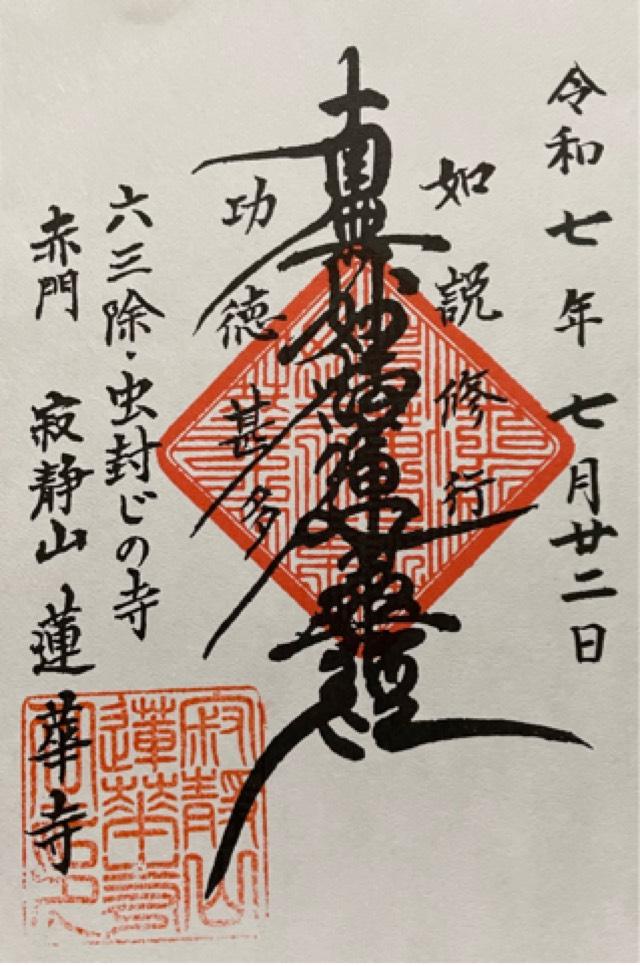 令和七年七月廿二日
如説修行
南無妙法蓮華経
功徳甚多
六三除・虫封じの寺
赤門 寂静山 蓮華寺
寂静山
蓮華寺